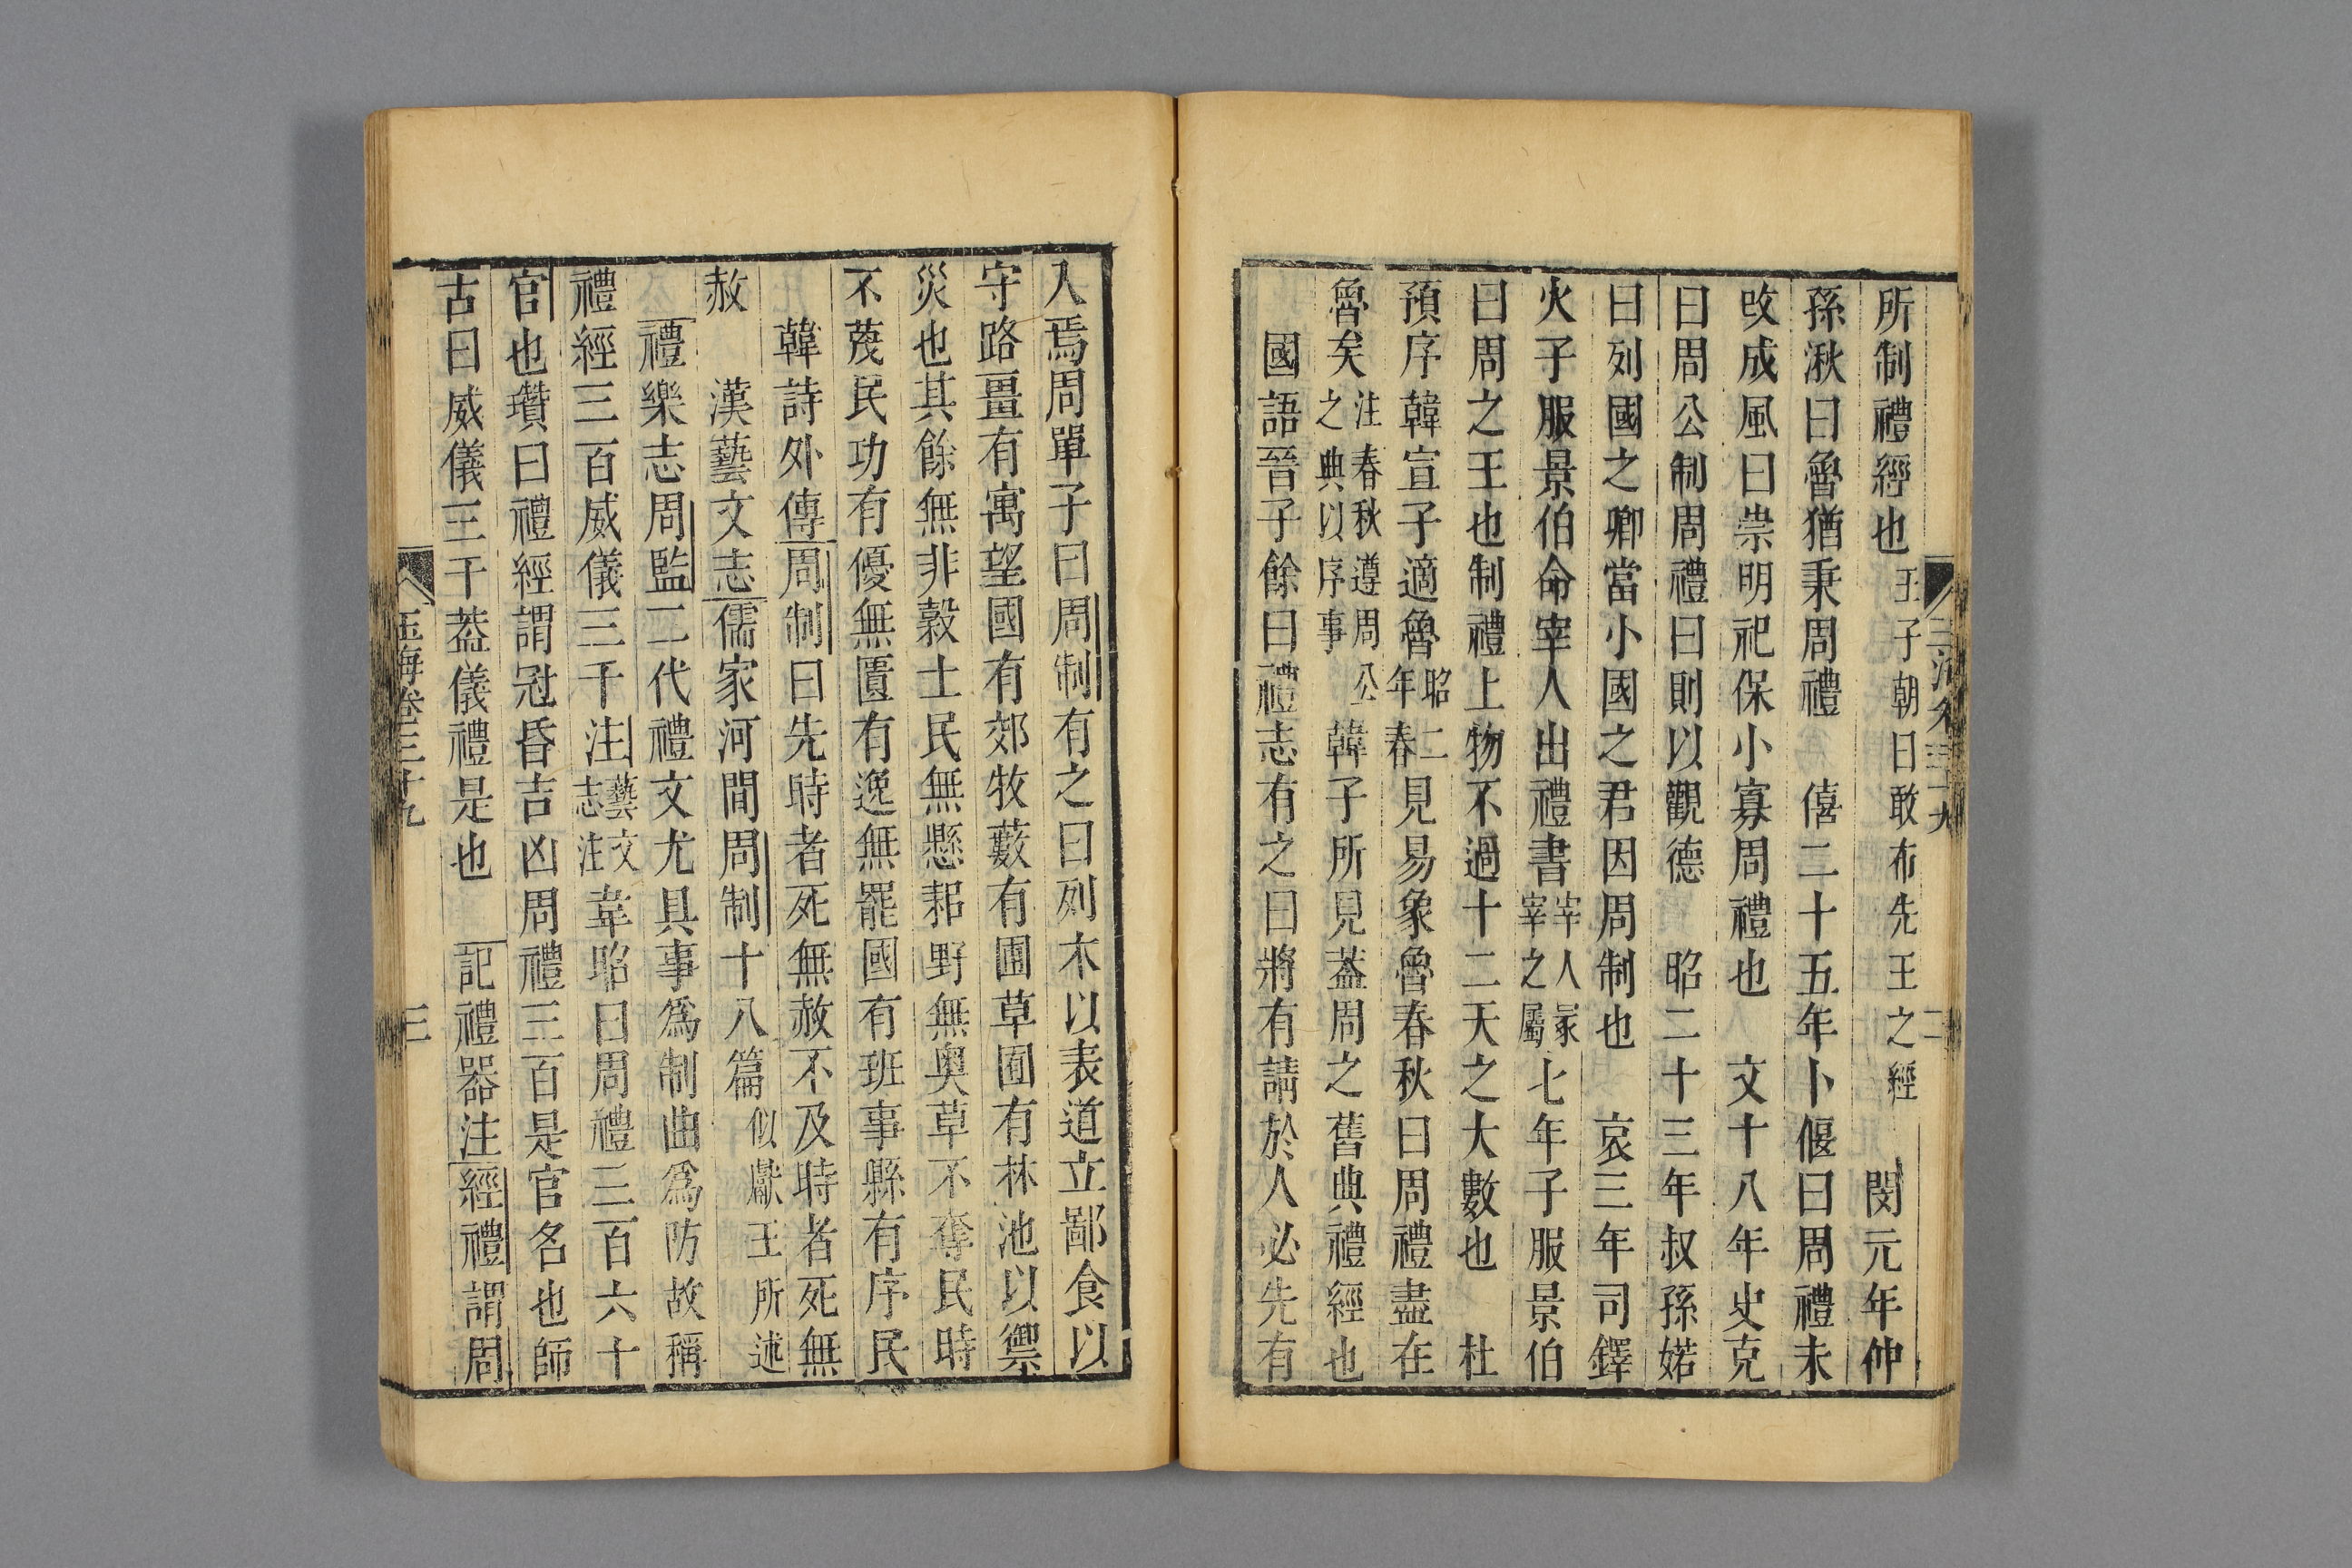 所制禮經也王子朝曰敢布先王之經 閔元年仲
孫湫曰魯猶秉周禮 僖二十五年卜偃曰周禮未
改成風曰崇明祀保小寡周禮也 文十八年史克
曰周公制周禮曰則以觀德 昭二十三年叔孫婼
曰列國之卿當小國之君因周制也 哀三年司鐸
火子服景伯命宰人出禮書宰人冢宰之屬七年子服景伯
曰周之王也制禮上物不過十二天之大數也 杜
預序韓宣子適魯昭二年春見易象魯春秋曰周禮盡在
魯矣注春秋遵周公之典以序事韓子所見蓋周之舊典禮經也
國語晉子餘曰禮志有之曰將有請於人必先有
入焉周單子曰周制有之曰列木以表道立鄙食以
守路畺有寓望國有郊牧藪有圃草囿有林池以禦
災也其餘無非穀士民無懸耜野無奥草不奪民時
不蔑民功有優無匱有逸無罷國有班事縣有序民
韓詩外傳周制曰先時者死無赦不及時者死無
赦 漢藝文志儒家河間周制十八篇似獻王所述
禮樂志周監二代禮文尤具事爲制曲爲防故稱
禮經三百威儀三千注藝文志注韋昭曰周禮三百六十
官也瓚曰禮經謂冠昏吉凶周禮三百是官名也師
古曰威儀三千葢儀禮是也 記禮器注經禮謂周
玉海卷三十九 三